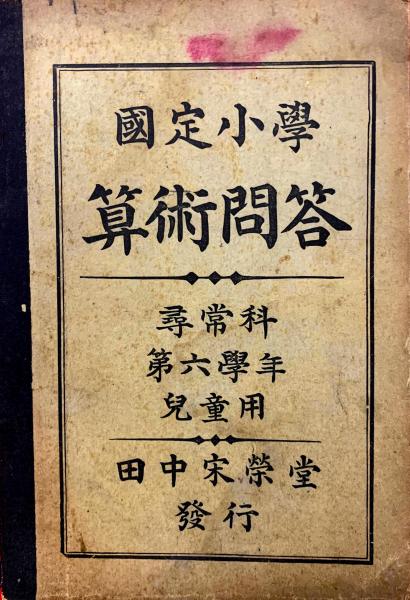 國定小學
算術問答
尋常科
第六學年
兒童用
田中宋榮堂
發行